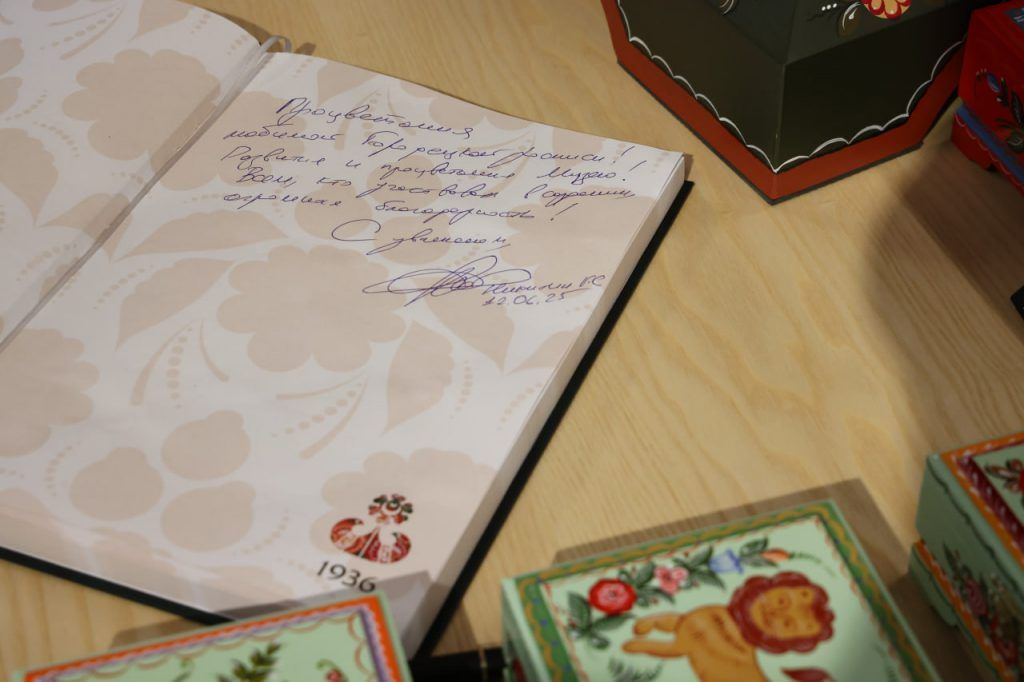 Процветания
любимой Городецкой росписи!
Развития и процветания Музею!
Всем, кто участвовал в создании
огромная благодарность!
С уважением,
Никитин Г.С
12.06.25
1936